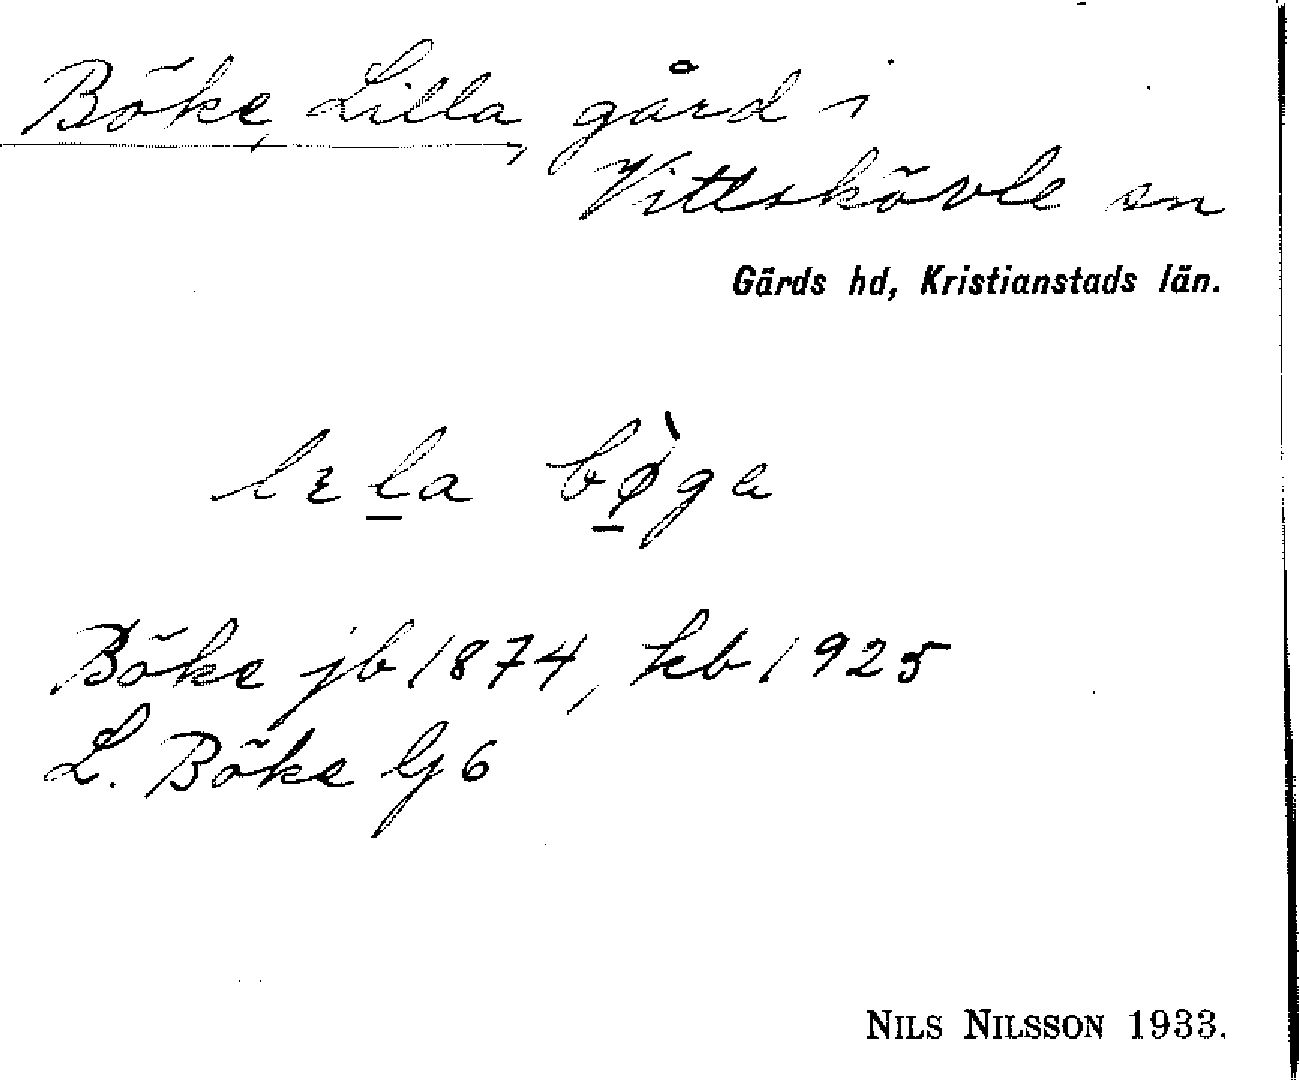 Böke, Lilla, gård i
Vittskövle sn
Gärds hd, Kristianstads län.
lɪla bø̀gə
Böke jb 1874, kb 1925
L. Böke G6
NILS NILSSON 1933.